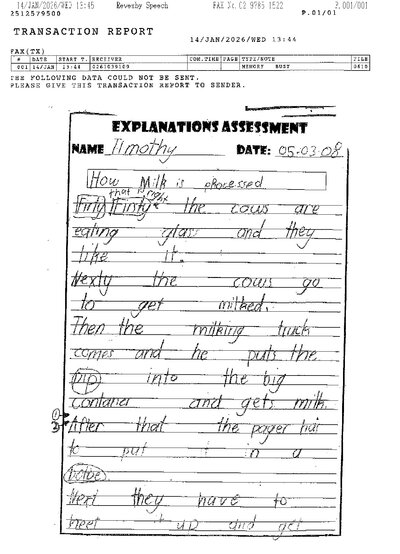 14/JAN/2026/WED 13:45 Revesby Speech FAX No. 02 9785 1522 P. 001/001
2512579500 P.01/01
TRANSACTION REPORT
14/JAN/2026/WED 13:44
FAX(TX)
# DATE START T. RECEIVER COM.TIME PAGE TYPE/NOTE FILE
001 14/JAN 13:44 MEMORY BUSY
THE FOLLOWING DATA COULD NOT BE SENT.
PLEASE GIVE THIS TRANSACTION REPORT TO SENDER.
EXPLANATIONS ASSESSMENT
NAME Timothy DATE: 05-03-08
How Milk is processed
that is right
Firty Firsty the cows are
eating glass and they
like it.
Nexty the cows go
to get milked.
Then the milking truck
comes and he puts the
pip into the big
contaner and gets milk.
① 
② After that the pager hat
to put it in a
botoe.
Next they have to
heet it up and get